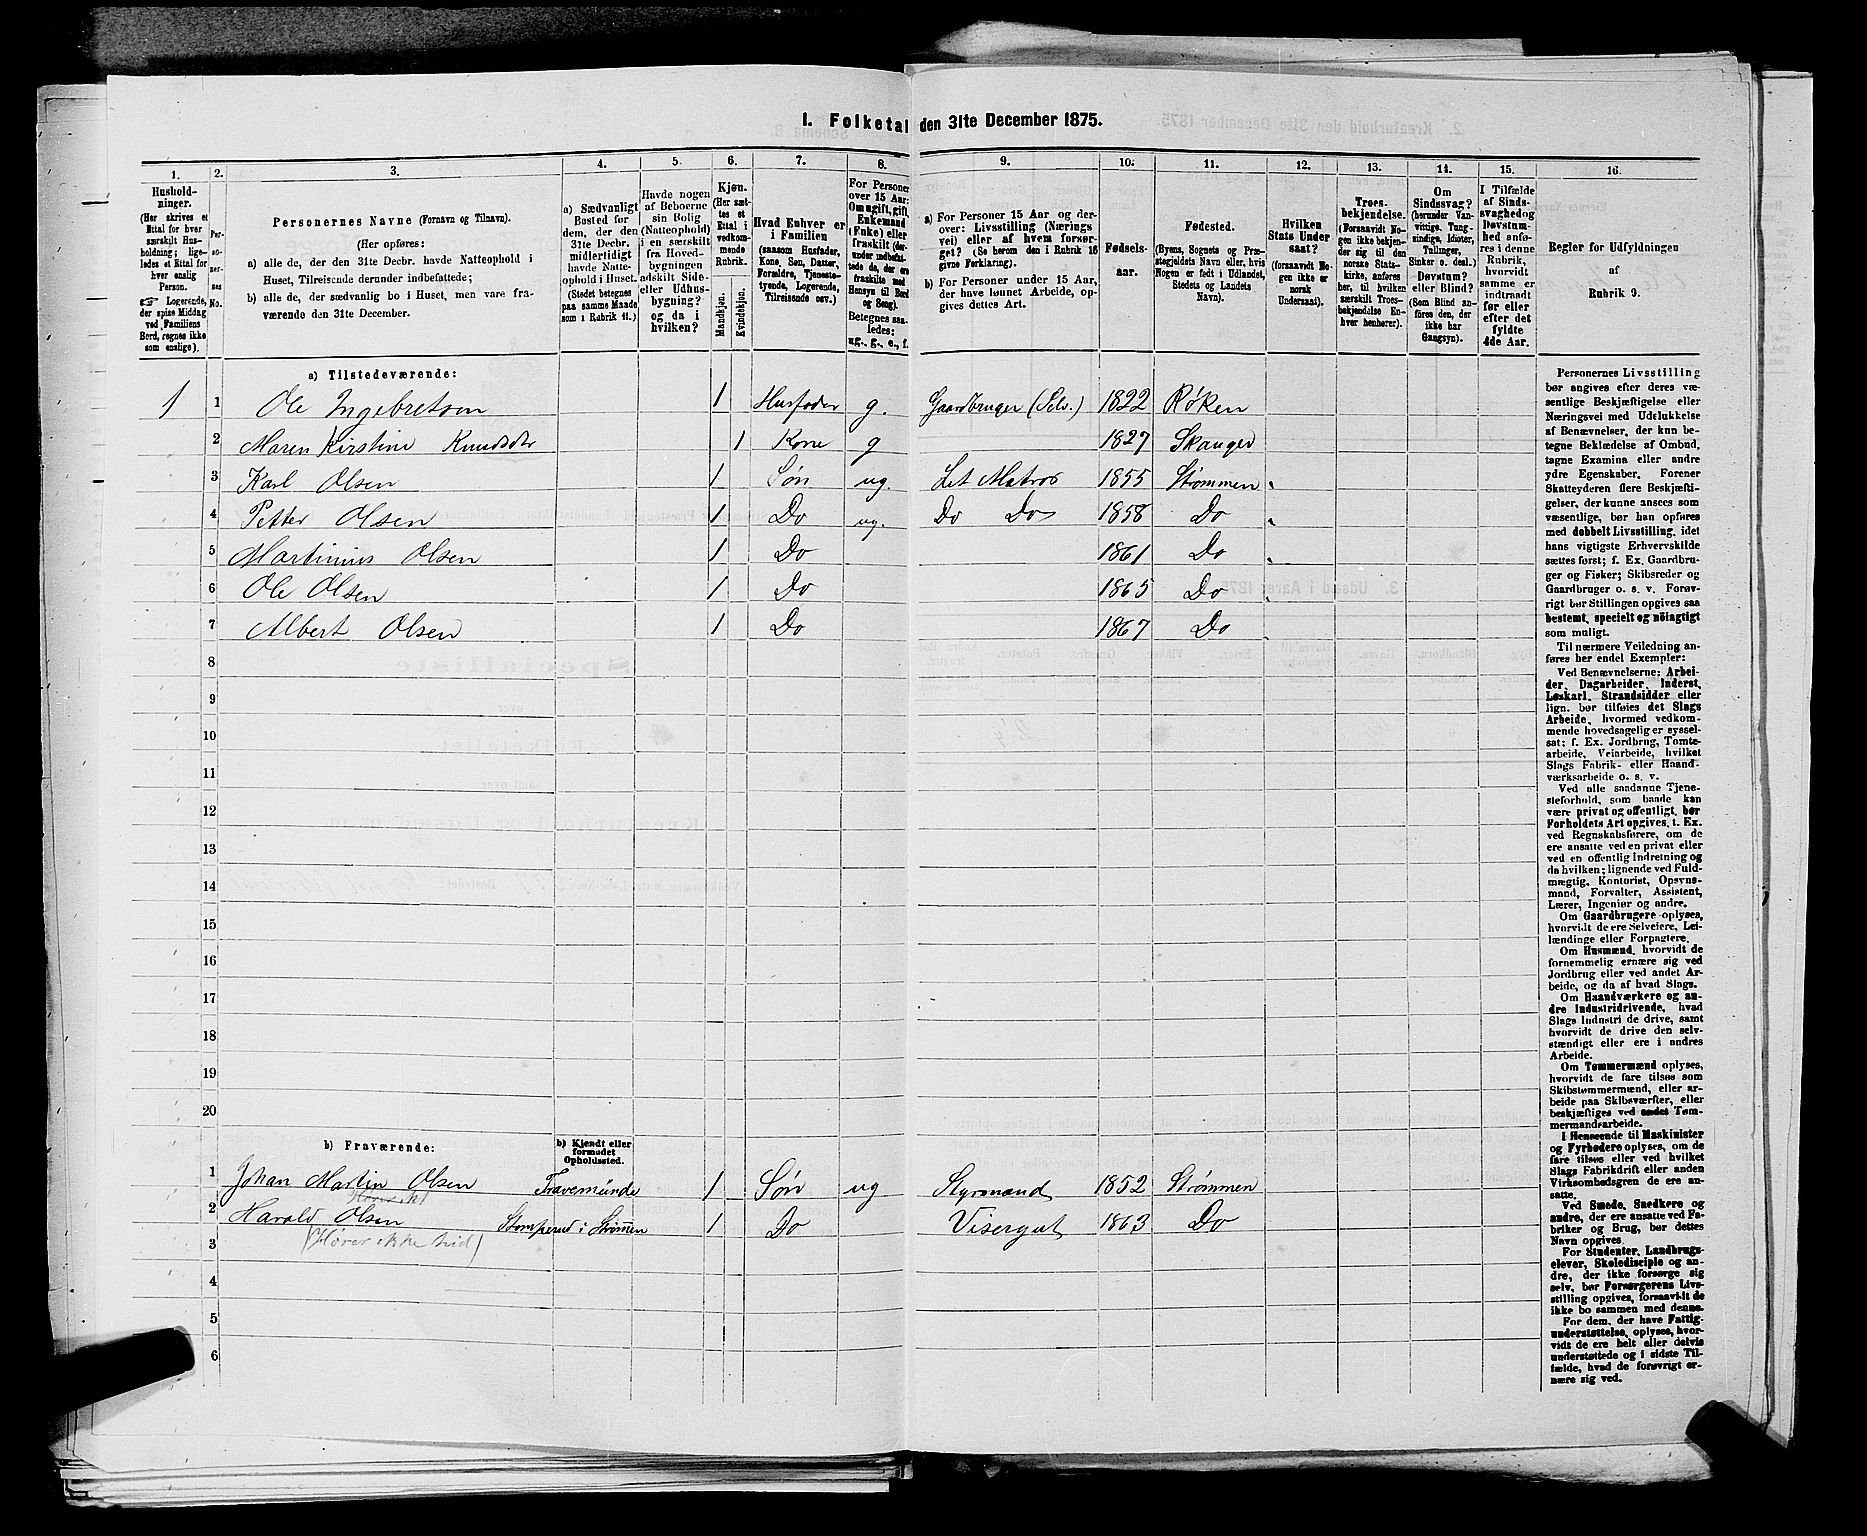 1. Folketal den 31te December 1875.
1. 2. 3. 4. 5. 6. 7. 8. 9. 10. 11. 12. 13. 14. 15. 16.
Hushold-
ninger.
(Her skrives et
Ettal for hver
særskilt Hus-
holdning; lige-
ledes et Ettal for
hver enslig
Person.
☞ Logerende,
der spise Middag
ved Familiens
Bord, regnes ikke
som enslige).
Per-
so-
ner-
nes
No.
Personernes Navne (Fornavn og Tilnavn).
(Her opføres:
a) alle de, der den 31te Decbr. havde Natteophold i
Huset, Tilreisende derunder indbefattede;
b) alle de, der sædvanlig bo i Huset, men vare fra-
værende den 31te December.
a) Sædvanligt
Bosted for
dem, der den
31te Decbr.
midlertidigt
havde Natte-
ophold i Huset.
(Stedet betegnes
paa samme Maade
som i Rubrik 11.)
Havde nogen
af Beboerne
sin Bolig
(Natteophold)
i en særskilt
fra Hoved-
bygningen
adskilt Side-
eller Udhus-
bygning?
og da i
hvilken?
Kjøn.
(Her sæt-
tes et
Ettal i
vedkom-
mende
Rubrik.
Mandkjøn.
Kvindekjøn.
Hvad Enhver er
i Familien
(saasom Husfader,
Kone, Søn, Datter,
Forældre, Tjeneste-
tyende, Logerende,
Tilreisende osv.)
For Personer
over 15 Aar:
Om ugift, gift,
Enkemand
(Enke) eller
fraskilt (der-
under indbefat-
tede de, der ere
fraskilte med
Hensyn til Bord
og Seng).
Betegnes saa-
ledes:
ug., g., e., f.
a) For Personer 15 Aar og der-
over: Livsstilling (Nærings-
vei) eller af hvem forsør-
get? (Se herom den i Rubrik 16
givne Forklaring).
b) For Personer under 15 Aar,
der have lønnet Arbeide, op-
gives dettes Art.
Fødsels-
aar.
Fødested.
(Byens, Sognets og Præ-
stegjeldets Navn eller, hvis
Nogen er født i Udlandet,
Stedets og Landets
Navn).
Hvilken
Stats Under-
saat?
(forsaavidt No-
gen ikke er
norsk
Undersaat).
Troes-
bekjendelse.
(Forsaavidt No-
gen ikke bekjen-
der sig til den
norske Stats-
kirke, anføres
her, til hvilken
særskilt Troes-
bekjendelse En-
hver henhører).
Om
Sindssvag?
(herunder Van-
vittige, Tung-
sindige, Idioter,
Tullinger,
Sinker o. desl.)
Døvstum?
eller Blind?
(Som Blind an-
føres den, der
ikke har
Gangsyn).
I Tilfælde
af Sinds-
svaghed og
Døvstum-
hed anfø-
res i denne
Rubrik,
hvorvidt
samme er
indtraadt
før eller
efter det
fyldte
4de Aar.
Regler for Udfyldningen
af
Rubrik 9.
a) Tilstedeværende:
1 1 Ole Ingebretsen 1 Husfader g. Gaardbruger (Selv.) 1822 Røken
2 Maren Kirstine Knudsdtr 1 Kone g 1827 Skauger
3 Karl Olsen 1 Søn ug. Let Matros 1855 Strømmen
4 Petter Olsen 1 Do ug. Do Do 1858 Do
5 Martinius Olsen 1 Do 1861 Do
6 Ole Olsen 1 Do 1865 Do
7 Albert Olsen 1 Do 1867 Do
8
9
10
11
12
13
14
15
16
17
18
19
20
b) Fraværende:
b) Kjendt eller
formodet
Opholdssted.
1 Johan Martin Olsen Travemünde 1 Søn ug Styrmand 1852 Strømmen
2 Harald Olsen Stomperud i Strømmen 1 Do Visergut 1863 Do
(Hører ikke hid)
3
4
5
6
Personernes Livsstilling
bør angives efter deres væ-
sentlige Beskjæftigelse eller
Næringsvei med Udelukkelse
af Benævnelser, der kun be-
tegne Beklædelse af Ombud,
tagne Examina eller andre
ydre Egenskaber. Forener
Skatteyderen flere Beskjæfti-
gelser, der kunne ansees som
væsentlige, bør han opføres
med dobbelt Livsstilling, idet
hans vigtigste Erhvervskilde
sættes først; f. Ex. Gaardbru-
ger og Fisker; Skibsreder og
Gaardbruger o. s. v. Forøv-
rigt bør Stillingen opgives saa
bestemt, specielt og nöiagtigt
som muligt.
Til nærmere Veiledning an-
føres her endel Exempler:
Ved Benævnelserne: Arbei-
der, Dagarbeider, Inderst,
Løskarl, Strandsidder eller
lign. bør tilføies det Slags
Arbeide, hvormed vedkom-
mende hovedsagelig er syssel-
sat; f. Ex. Jordbrug, Tomte-
arbeide, Veiarbeide, hvilket
Slags Fabrik- eller Haand-
værksarbeide o. s. v.
Ved alle saadanne Tjene-
steforhold, som baade kan
være privat og offentligt, bør
Forholdets Art opgives, f. Ex.
ved Regnskabsførere, om de
ere ansatte ved en privat eller
ved en offentlig Indretning og
da hvilken; lignende ved Fuld-
mægtig, Kontorist, Opsyns-
mand, Forvalter, Assistent,
Lærer, Ingeniør og andre.
Om Gaardbrugere oplyses,
hvorvidt de ere Selveiere, Lei-
lændinge eller Forpagtere.
Om Husmænd, hvorvidt de
fornemmelig ernære sig ved
Jordbrug eller ved andet Ar-
beide, og da af hvad Slags.
Om Haandværkere og an-
dre Industridrivende, hvad
Slags Industri de drive, samt
hvorvidt de drive den selv-
stændigt eller ere i andres
Arbeide.
Om Tømmermænd oplyses,
hvorvidt de fare tilsøs som
Skibstømmermænd, eller ar-
beide paa Skibsværfter, eller
beskjæftiges ved andet Tøm-
mermandsarbeide.
I Henseende til Maskinister
og Fyrbødere oplyses, om de
fare tilsøs eller ved hvilket
Slags Fabrikdrift eller anden
Virksomhedsgren de ere an-
satte.
Ved Smede, Snedkere og
andre, der ere ansatte ved Fa-
briker og Brug, bør dettes
Navn opgives.
For Studenter, Landbrugs-
elever, Skoledisciple og an-
dre, der ikke forsørge sig
selv, bør Forsørgerens Livs-
stilling opgives, forsaavidt de
ikke bo sammen med denne.
For dem, der have Fattig-
understøttelse, oplyses, hvor-
vidt de ere helt eller delvis
understøttede og i sidste Til-
fælde, hvad de forøvrigt er-
nære sig ved.